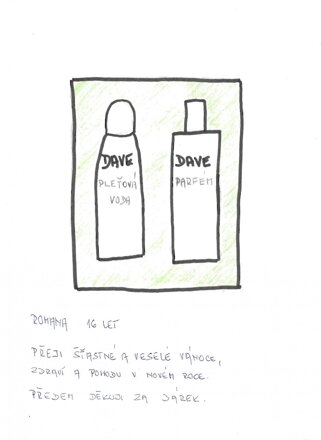 DAVE
PLEŤOVÁ
VODA
DAVE
PARFÉM
ROMANA 16 LET
PŘEJI ŠŤASTNÉ A VESELÉ VÁNOCE,
ZDRAVÍ A POHODU V NOVÉM ROCE.
PŘEDEM DĚKUJI ZA DÁREK.